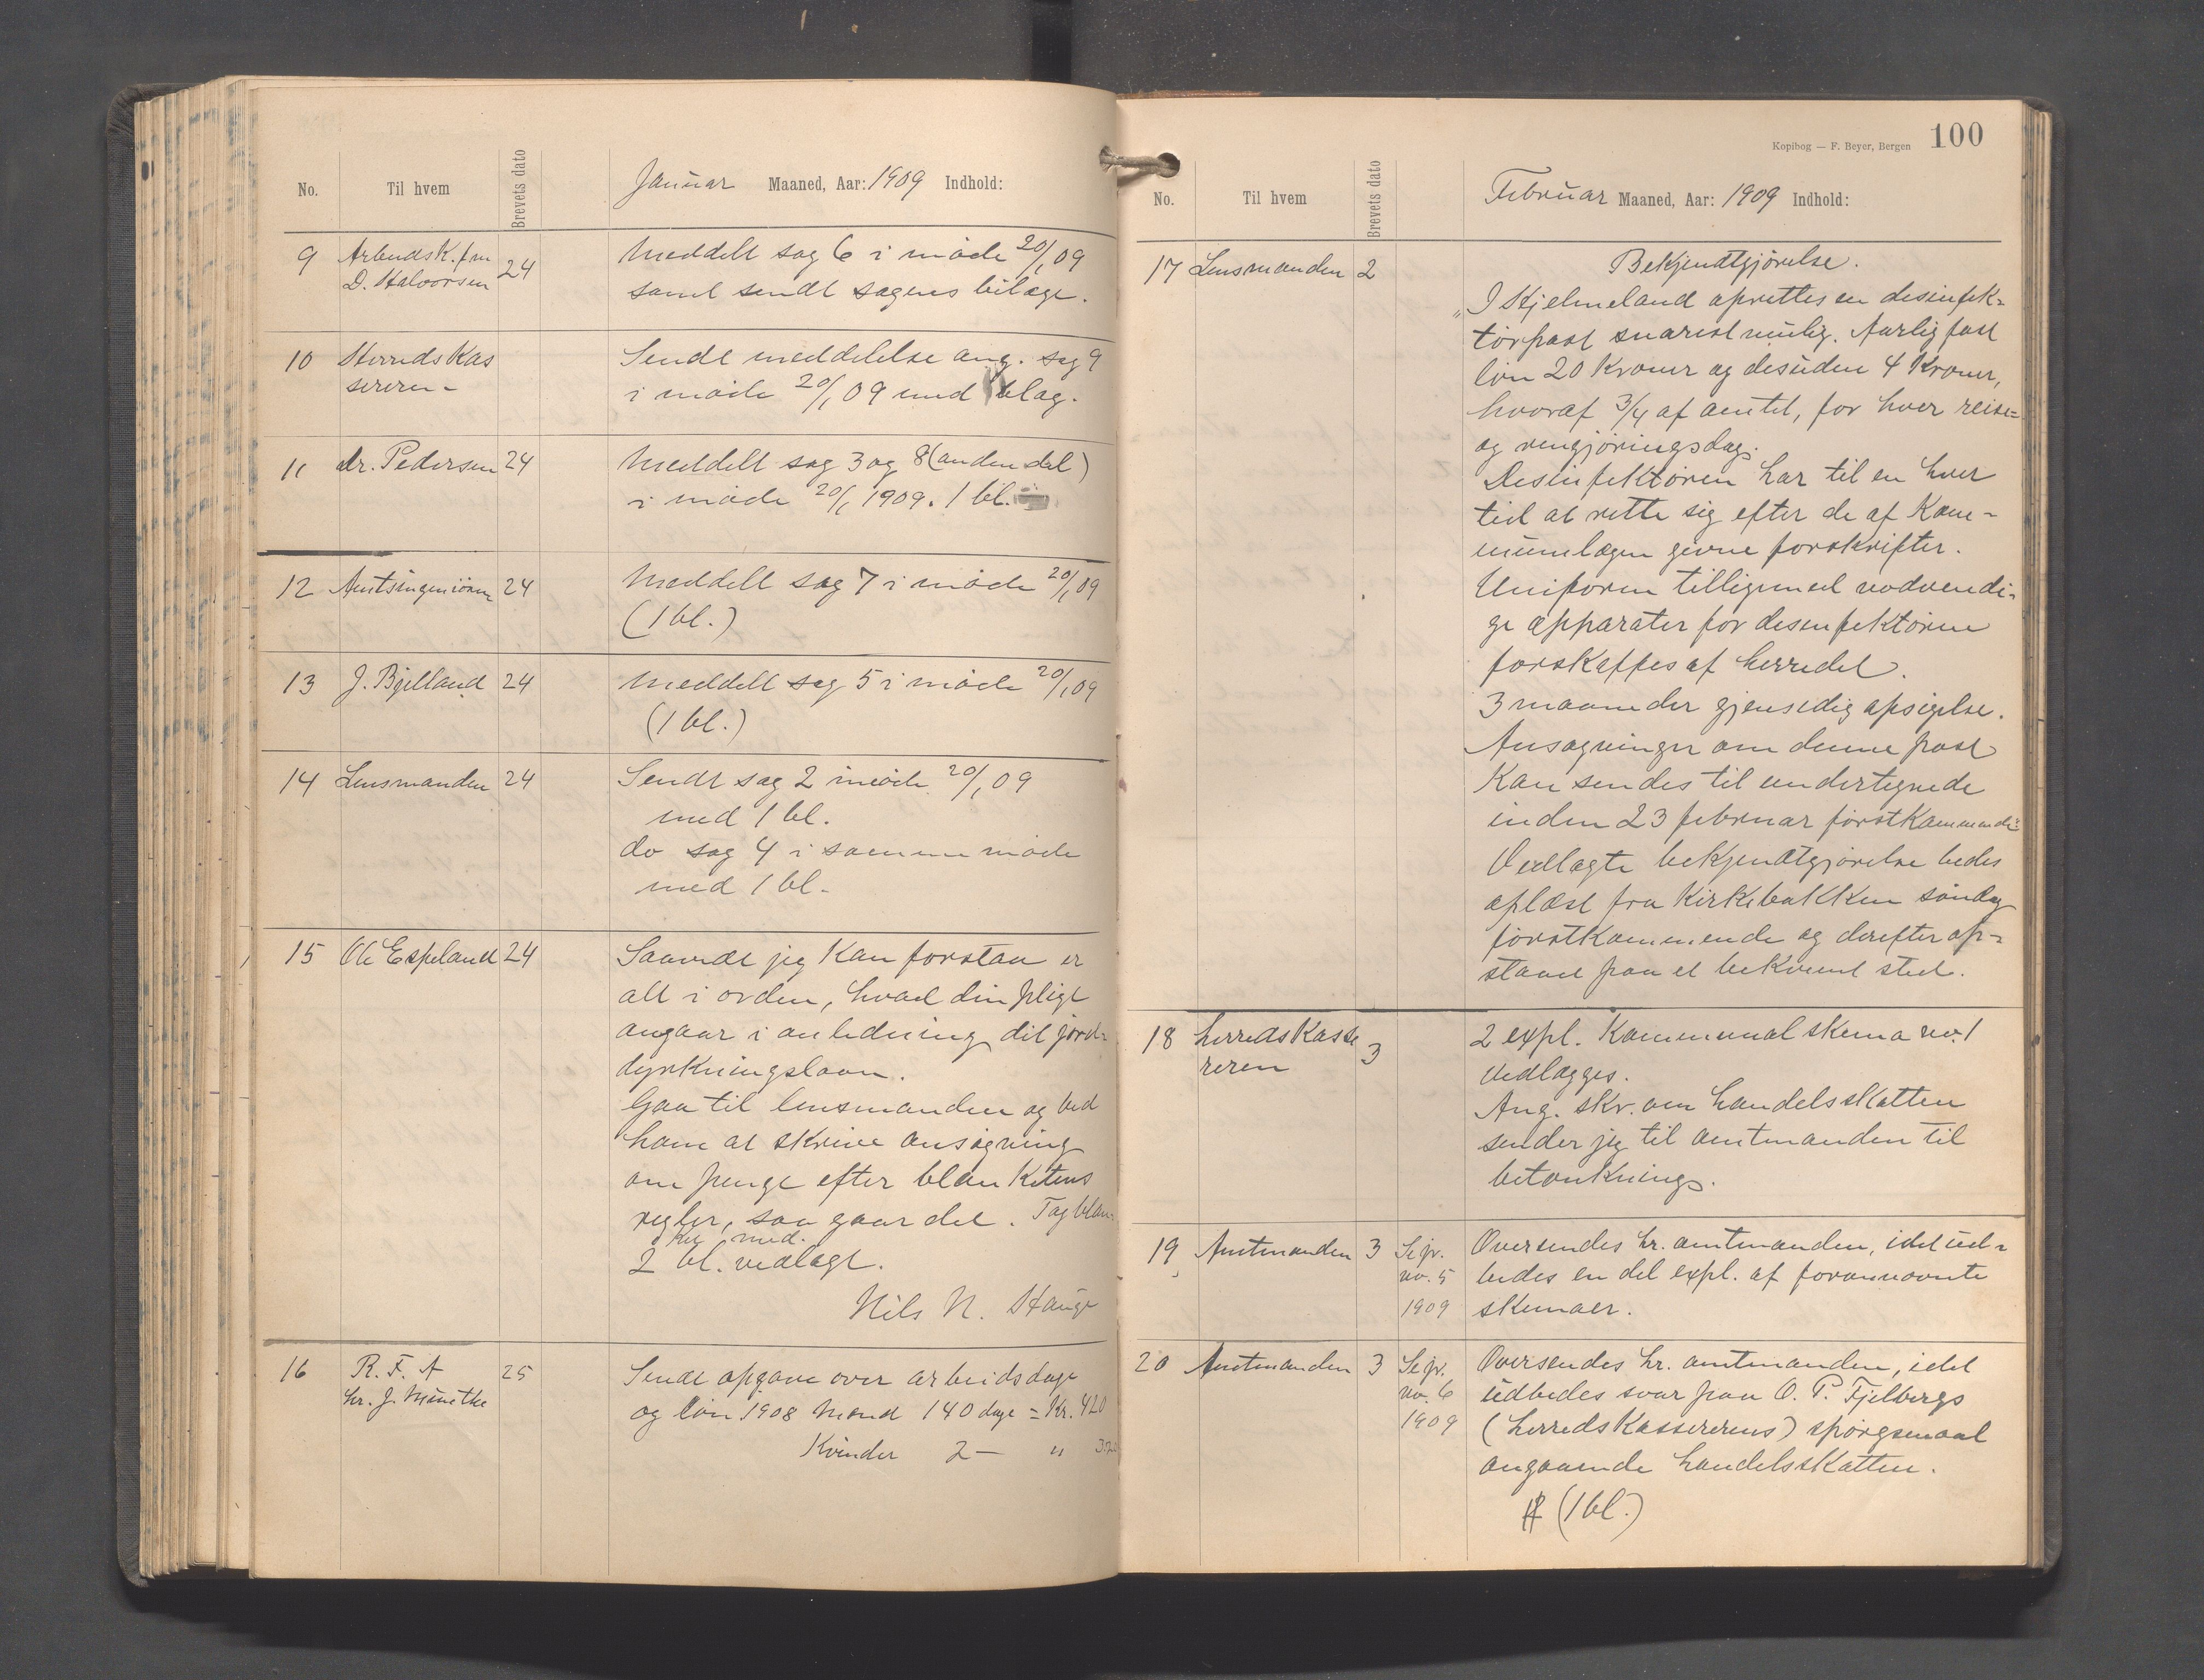 No. Til hvem Brevets dato Januar Maaned, Aar: 1909 Indhold:
9 Arbeidsk. frm 24 Meddelt sag 6 i møde 20/1 09
D. Halvorsen samt sendt sagens bilage.
10 Herredskas Sendt meddelelse ang. sag 9
sereren - i møde 20/1 09 med blag.
11 dr. Pedersen 24 Meddelt sag 3 og 8 (anden del)
i møde 20/1 1909. 1 bl.
12 Amtsingeniøren 24 Meddelt sag 7 i møde 20/1 09
(1 bl.)
13 J. Bjelland 24 Meddelt sag 5 i møde 20/1 09
(1 bl.)
14 Lensmanden 24 Sendt sag 2 i møde 20/1 09
med 1 bl.
do sag 4 i samme møde
med 1 bl.
15 Ole Espeland 24 Saavidt jeg kan forstaa er
alt i orden, hvad din pligt
angaar i anledning dit jord-
dyrkningslaan.
Gaa til lensmanden og bed
ham at skrive ansøgning
om penge efter blanketens
regler, saa gaar det. Tag blan-
ket med.
2 bl. vedlagt.
Nils N. Hauge
16 R. F. A 25 Sendt opgave over arbeidsdage
hr. J. og løn 1908 Mænd 140 dage = Kr. 420
Kvinder 2 — "
Kopibog — F. Beyer, Bergen 100
No. Til hvem Brevets dato Februar Maaned, Aar: 1909 Indhold:
17 Lensmanden 2 Bekjendtgjørelse.
"I Hjelmeland oprettes en desinfek-
tørpost snarest mulig. Aarlig fast
løn 20 Kroner og desuden 4 Kroner,
hvoraf 3/4 af amtet, for hver reise-
og rengjøringsdag.
Desinfektøren har til en hver
tid at rette sig efter de af Kom-
munelægen givne forskrifter.
Uniform tilligemed nødvendi-
ge apparater for desenfektøren
forskaffes af herredet.
3 maaneder gjensidig opsigelse.
Ansøgninger om denne post
Kan sendes til undertegnede
inden 23 februar førstkommende"
Vedlagte bekjendtgjørelse bedes
oplæst fra Kirkebakken søndag
førstkommende og derefter op-
slaaet paa et bekvemt sted.
18 herredskasse 3 2 expl. Kommunal skema no. 1
reren vedlægges.
Ang. skr. om handelsskatten
sender jeg til amtmanden til
betænkning.
19 Amtmanden 3 Se jr. Oversendes hr. amtmanden, idet ud-
no. 5 bedes en del expl. af forannævnte
1909 skemaer.
20 Amtmanden 3 Se jr. Oversendes hr. amtmanden, idet
no. 6 udbedes svar paa O. P. Fjelbergs
1909 (herredskassererens) spørgsmaal
angaaende handelsskatten.
(1 bl.)